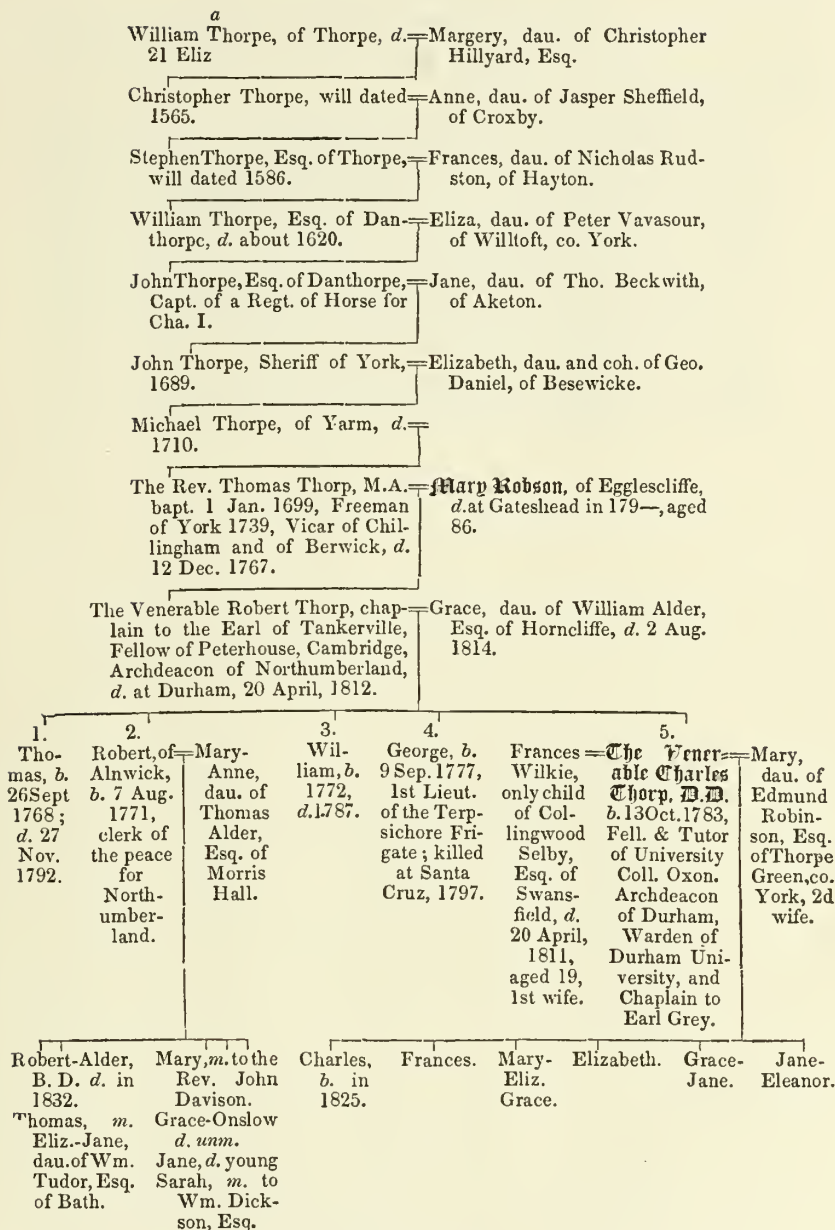 a
William Thorpe, of Thorpe, d.
21 Eliz
Margery, dau. of Christopher
Hillyard, Esq.
Christopher Thorpe, will dated
1565.
Anne, dau. of Jasper Sheffield,
of Croxby.
StephenThorpe, Esq. of Thorpe,
will dated 1586.
Frances, dau. of Nicholas Rud-
ston, of Hayton.
William Thorpe, Esq. of Dan-
thorpe, d. about 1620.
Eliza, dau. of Peter Vavasour,
of Willtoft, co. York.
JohnThorpe, Esq. of Danthorpe,
Capt. of a Regt. of Horse for
Cha. I.
Jane, dau. of Tho. Beckwith,
of Aketon.
John Thorpe, Sheriff of York,
1689.
Elizabeth, dau. and coh. of Geo.
Daniel, of Besewicke.
Michael Thorpe, of Yarm, d.
1710.
The Rev. Thomas Thorp, M.A.
bapt. 1 Jan. 1699, Freeman
of York 1739, Vicar of Chil-
lingham and of Berwick, d.
12 Dec. 1767.
Mary Robson, of Egglescliffe,
d.at Gateshead in 179—, aged
86.
The Venerable Robert Thorp, chap-
lain to the Earl of Tankerville,
Fellow of Peterhouse, Cambridge,
Archdeacon of Northumberland,
d. at Durham, 20 April, 1812.
Grace, dau. of William Alder,
Esq. of Horncliffe, d. 2 Aug.
1814.
1.
Tho-
mas, b.
26Sept
1768;
d. 27
Nov.
1792.
2.
Robert, of
Alnwick,
b. 7 Aug.
1771,
clerk of
the peace
for
North-
umber-
land.
Mary-
Anne,
dau. of
Thomas
Alder,
Esq. of
Morris
Hall.
3.
Wil-
liam, b.
1772,
d.1787.
4.
George, b.
9 Sep. 1777,
1st Lieut.
of the Terp-
sichore Fri-
gate; killed
at Santa
Cruz, 1797.
Frances
Wilkie,
only child
of Col-
lingwood
Selby,
Esq. of
Swans-
field, d.
20 April,
1811,
aged 19,
1st wife.
5.
The Vener-
able Charles
Thorp, D.D.
b. 13Oct.1783,
Fell. & Tutor
of University
Coll. Oxon.
Archdeacon
of Durham,
Warden of
Durham Uni-
versity, and
Chaplain to
Earl Grey.
Mary,
dau. of
Edmund
Robin-
son, Esq.
ofThorpe
Green,co.
York, 2d
wife.
Robert-Alder,
B. D. d. in
1832.
Thomas, m.
Eliz.-Jane,
dau.of Wm.
Tudor, Esq.
of Bath.
Mary,m. to the
Rev. John
Davison.
Grace-Onslow
d. unm.
Jane, d. young
Sarah, m. to
Wm. Dick-
son, Esq.
Charles,
b. in
1825.
Frances.
Mary-
Eliz.
Grace.
Elizabeth.
Grace-
Jane.
Jane-
Eleanor.